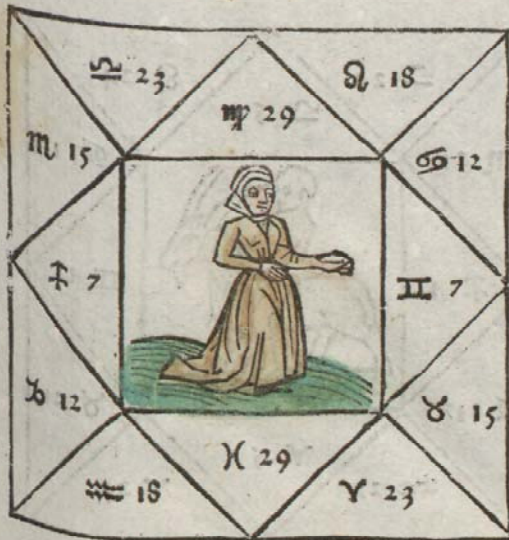 ♎ 23
♌ 18
♍ 29
♏ 15
♋ 12
♐ 7
♊ 7
♑ 12
♉ 15
♓ 29
♒ 18
♈ 23